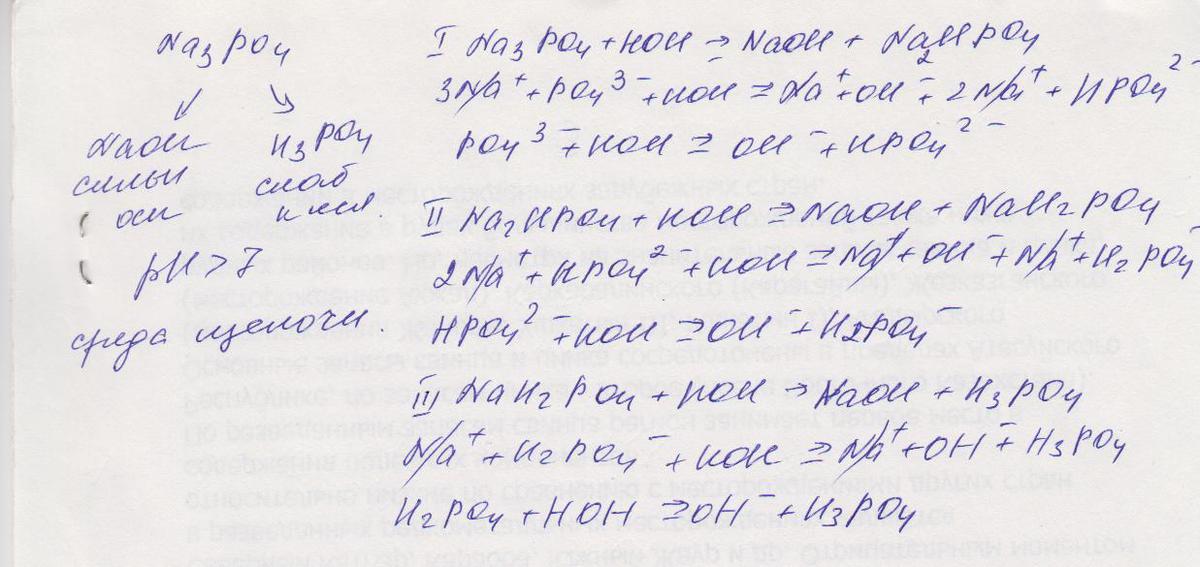 Na3PO4
NaOH H3PO4
сильн слаб
осн кисл.
pH > 7
среда щелочн
I Na3PO4 + HOH ⇒ NaOH + Na2HPO4
3Na⁺ + PO4³⁻ + HOH ⇒ Na⁺ + OH⁻ + 2Na⁺ + HPO4²⁻
PO4³⁻ + HOH ⇒ OH⁻ + HPO4²⁻
II Na2HPO4 + HOH ⇒ NaOH + NaH2PO4
2Na⁺ + HPO4²⁻ + HOH ⇒ Na⁺ + OH⁻ + Na⁺ + H2PO4⁻
HPO4²⁻ + HOH ⇒ OH⁻ + H2PO4⁻
III NaH2PO4 + HOH ⇒ NaOH + H3PO4
Na⁺ + H2PO4⁻ + HOH ⇒ Na⁺ + OH⁻ + H3PO4
H2PO4⁻ + HOH ⇒ OH⁻ + H3PO4